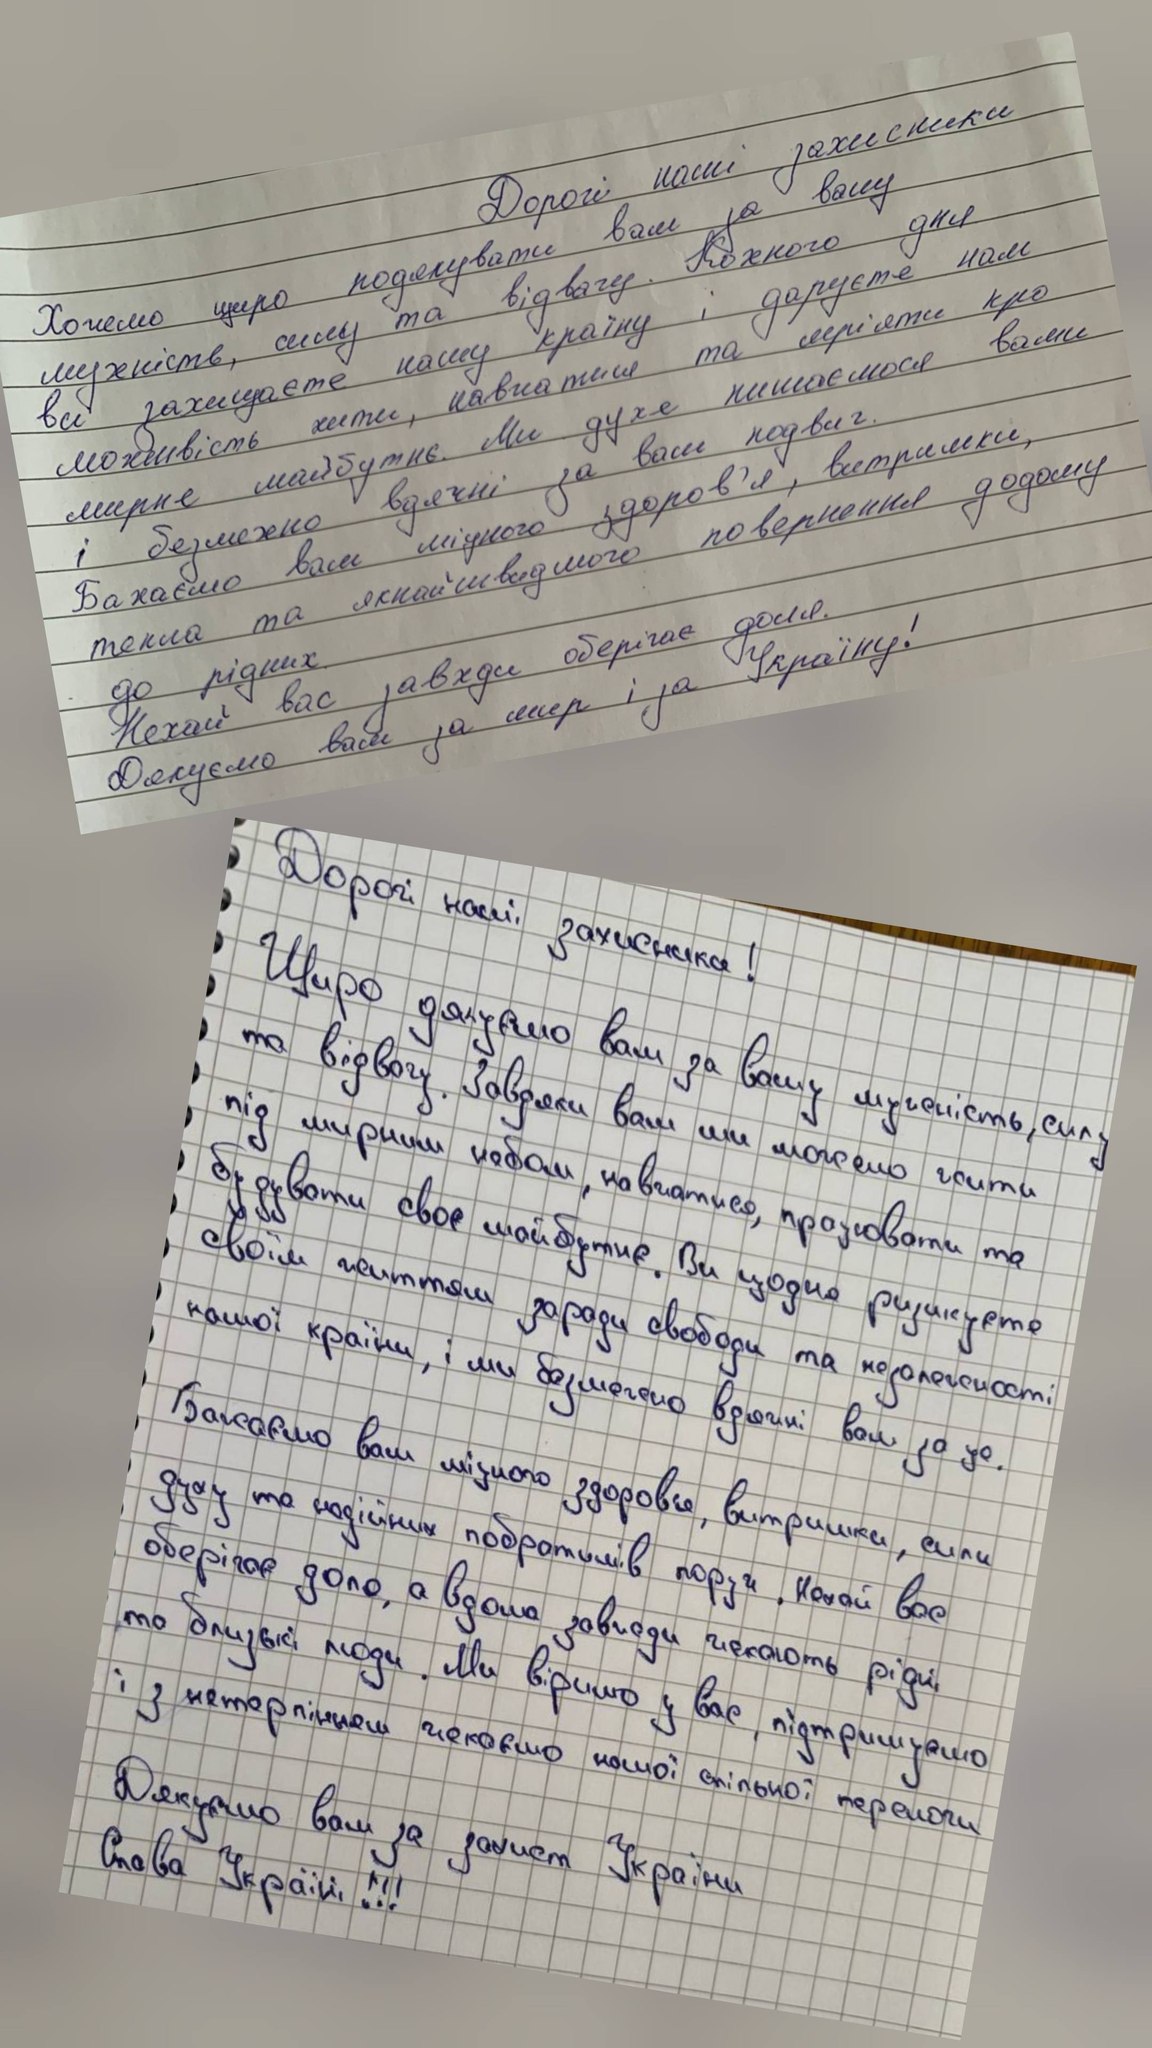 Дорогі наші захисники
Хочемо щиро подякувати вам за вашу
мужність, силу та відвагу. Кожного дня
ви захищаєте нашу країну і даруєте нам
можливість жити, навчатися та мріяти про
мирне майбутнє. Ми дуже пишаємося вами
і безмежно вдячні за ваш подвиг.
Бажаємо вам міцного здоров'я, витримки,
тепла та якнайшвидшого повернення додому
до рідних.
Нехай вас завжди оберігає доля.
Дякуємо вам за мир і за Україну!
Дорогі наші захисники!
Щиро дякуємо вам за вашу мужність, силу
та відвагу. Завдяки вам ми можемо жити
під мирним небом, навчатися, працювати та
будувати своє майбутнє. Ви щодня ризикуєте
своїм життям заради свободи та незалежності
нашої країни, і ми безмежно вдячні вам за це.
Бажаємо вам міцного здоровя, витримки, сили
духу та надійних побратимів поруч. Нехай вас
оберігає доля, а вдома завжди чекають рідні
та близькі люди. Ми віримо у вас, підтримуємо
і з нетерпінням чекаємо нашої спільної перемоги
Дякуємо вам за захист України
Слава Україні!!!